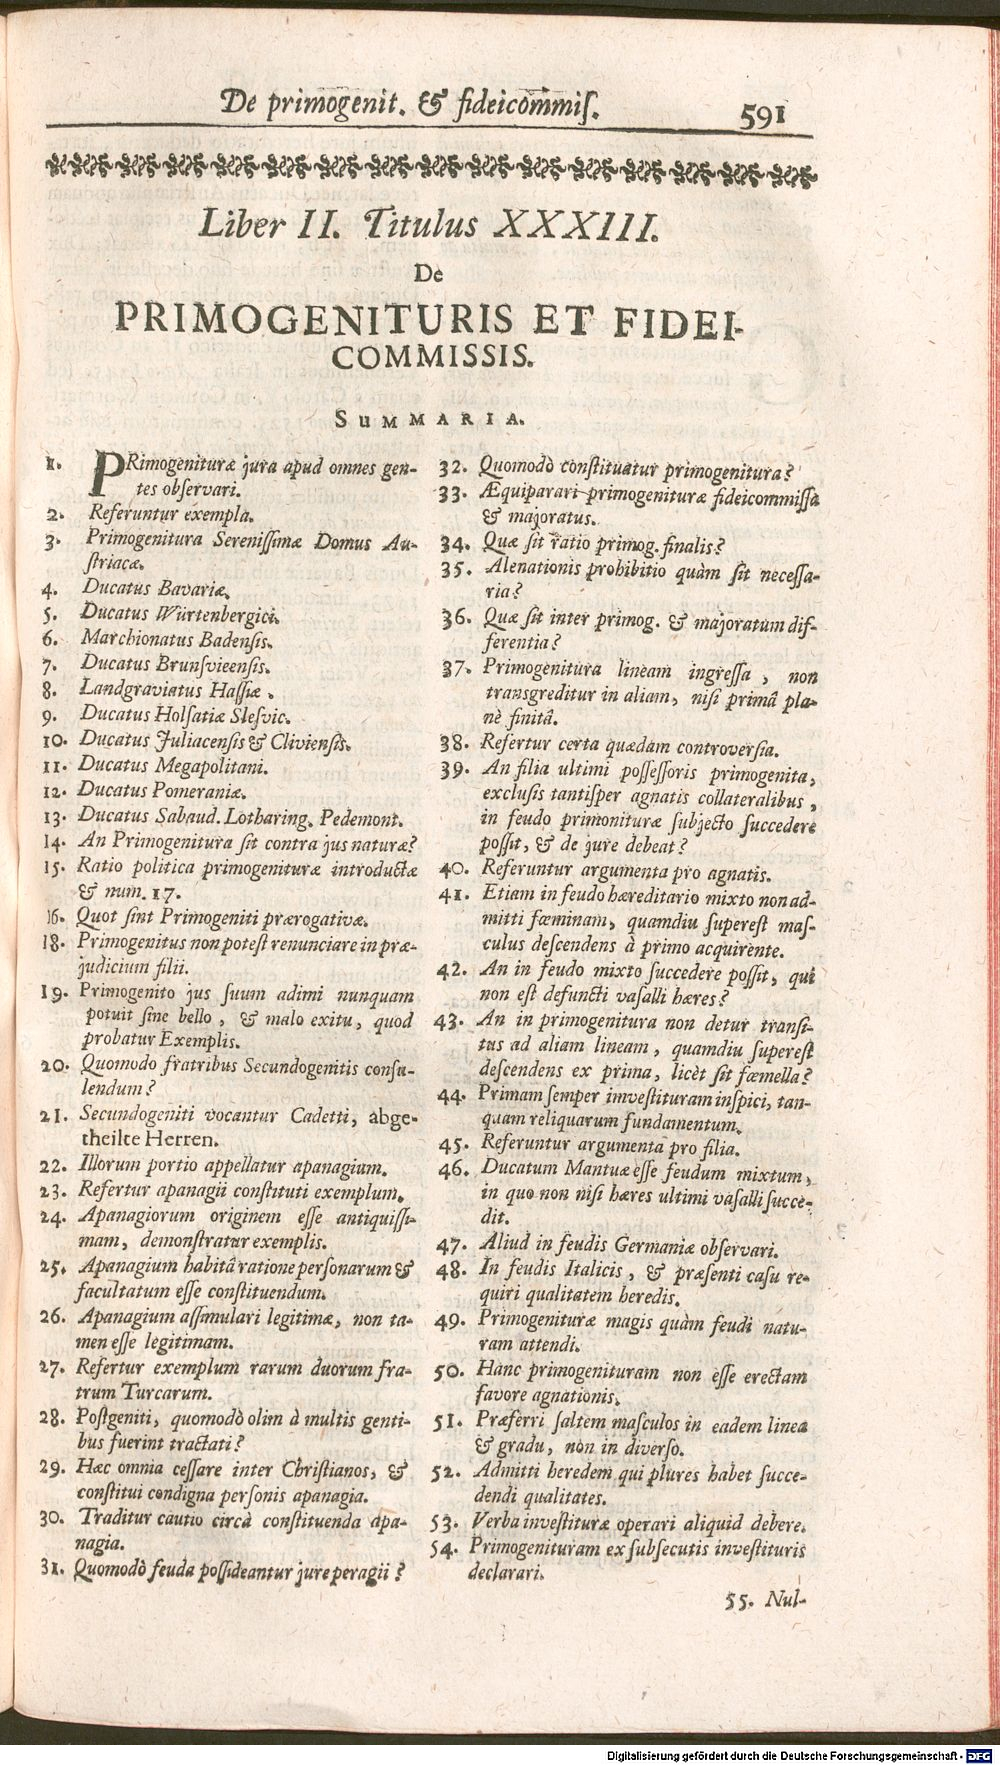 De primogenit. & fideicommiſ.
591
Liber II. Titulus XXXIII.
De
PRIMOGENITURIS ET FIDEI-
COMMISSIS.
SUMMARIA.
1. PRimogenituræ jura apud omnes gen-
tes obſervari.
2. Referuntur exempla.
3. Primogenitura Sereniſſimæ Domus Au-
ſtriacæ.
4. Ducatus Bavariæ.
5. Ducatus Würtenbergici.
6. Marchionatus Badenſis.
7. Ducatus Brunſvieenſis.
8. Landgraviatus Haſſiæ.
9. Ducatus Holſatiæ Sleſvic.
10. Ducatus Juliacenſis & Clivienſis.
11. Ducatus Megapolitani.
12. Ducatus Pomeraniæ.
13. Ducatus Sabaud. Lotharing. Pedemont.
14. An Primogenitura ſit contra jus naturæ?
15. Ratio politica primogenituræ introductæ
& num. 17.
16. Quot ſint Primogeniti prærogativæ.
18. Primogenitus non poteſt renunciare in præ-
judicium filii.
19. Primogenito jus ſuum adimi nunquam
potuit ſine bello, & malo exitu, quod
probatur Exemplis.
20. Quomodo fratribus Secundogenitis conſu-
lendum?
21. Secundogeniti vocantur Cadetti, abge-
theilte Herren.
22. Illorum portio appellatur apanagium.
23. Refertur apanagii conſtituti exemplum.
24. Apanagiorum originem eſſe antiquiſſi-
mam, demonſtratur exemplis.
25. Apanagium habitâ ratione perſonarum &
facultatum eſſe conſtituendum.
26. Apanagium aſſimulari legitimæ, non ta-
men eſſe legitimam.
27. Refertur exemplum rarum duorum fra-
trum Turcarum.
28. Poſtgeniti, quomodò olim à multis genti-
bus fuerint tractati?
29. Hæc omnia ceſſare inter Chriſtianos, &
conſtitui condigna perſonis apanagia.
30. Traditur cautio circà conſtituenda apa-
nagia.
31. Quomodò feuda poſſideantur jure peragii?
32. Quomodò conſtituatur primogenitura?
33. Æquiparari primogenituræ fideicommiſſa
& majoratus.
34. Quæ ſit ratio primog. finalis?
35. Alenationis prohibitio quàm ſit neceſſa-
ria?
36. Quæ ſit inter primog. & majoratum dif-
ferentia?
37. Primogenitura lineam ingreſſa, non
transgreditur in aliam, niſi primâ pla-
nè finitâ.
38. Refertur certa quædam controverſia.
39. An filia ultimi poſſeſſoris primogenita,
excluſis tantiſper agnatis collateralibus,
in feudo primonituræ ſubjecto ſuccedere
poſſit, & de jure debeat?
40. Referuntur argumenta pro agnatis.
41. Etiam in feudo hæreditario mixto non ad-
mitti fœminam, quamdiu ſupereſt maſ-
culus deſcendens à primo acquirente.
42. An in feudo mixto ſuccedere poſſit, qui
non eſt defuncti vaſalli hæres?
43. An in primogenitura non detur tranſi-
tus ad aliam lineam, quamdiu ſupereſt
deſcendens ex prima, licèt ſit fœmella?
44. Primam ſemper inveſtituram inſpici, tan-
quam reliquarum fundamentum.
45. Referuntur argumenta pro filia.
46. Ducatum Mantuæ eſſe feudum mixtum,
in quo non niſi hæres ultimi vaſalli ſucce-
dit.
47. Aliud in feudis Germaniæ obſervari.
48. In feudis Italicis, & præſenti caſu re-
quiri qualitatem heredis.
49. Primogenituræ magis quàm feudi natu-
ram attendi.
50. Hanc primogenituram non eſſe erectam
favore agnationis.
51. Præferri ſaltem maſculos in eadem linea
& gradu, non in diverſo.
52. Admitti heredem qui plures habet ſucce-
dendi qualitates.
53. Verba inveſtituræ operari aliquid debere.
54. Primogenituram ex ſubſecutis inveſtituris
declarari.
55. Nul-
Digitalisierung gefördert durch die Deutsche Forschungsgemeinschaft - DFG